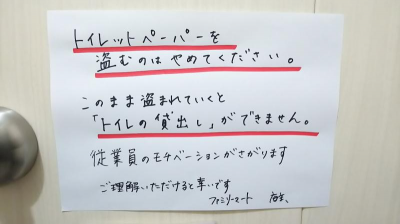 トイレットペーパーを
盗むのはやめてください。
このまま盗まれていくと
「トイレの貸出し」ができません。
従業員のモチベーションがさがります
ご理解いただけると幸いです
ファミリーマート 店主、